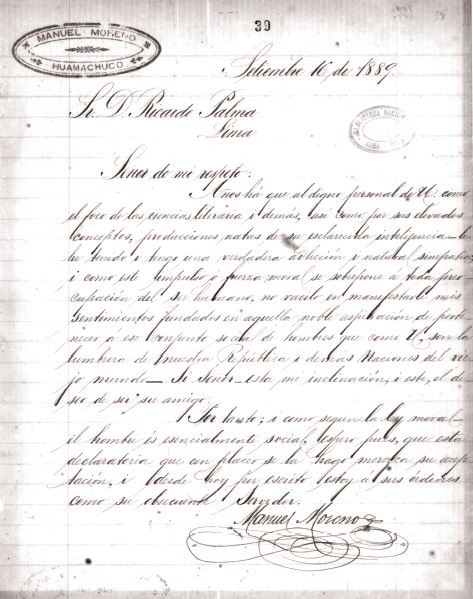 39
MANUEL MORENO
HUAMACHUCO
Setiembre 16 de 1889
Sr. D. Ricardo Palma
Lima
BIBLIOTECA NACIONAL
LIMA
Señor de mi respeto:
Años há que al digno personal de U. como
el foco de las ciencias literaria i demás, así como por sus elevados
conceptos, producciones natas de su esclarecida inteligencia le
he tenido i tengo una verdadera adhecion i natural simpatia;
i como este impulso o fuerza moral se sobrepone á toda preo-
cupación del ser humano, no vacilo en manifestarle mis
sentimientos fundados en aquella noble aspiración de perte-
necer á ese conjunto social de hombres que como U. son la
lumbrera de nuestra República i demas Naciones del vie-
jo mundo_ Si Señor esta mi inclinación, i este, el de-
seo de ser su amigo.
Por tanto; i como segun la ley moral
el hombre és esencialmente social, espero pues, que esta
declaratoria que con placer se la hago meresca su acep-
tación, i desde hoy por escrito estoy á sus órdenes
como su obsecuente Servidor.
Manuel Moreno